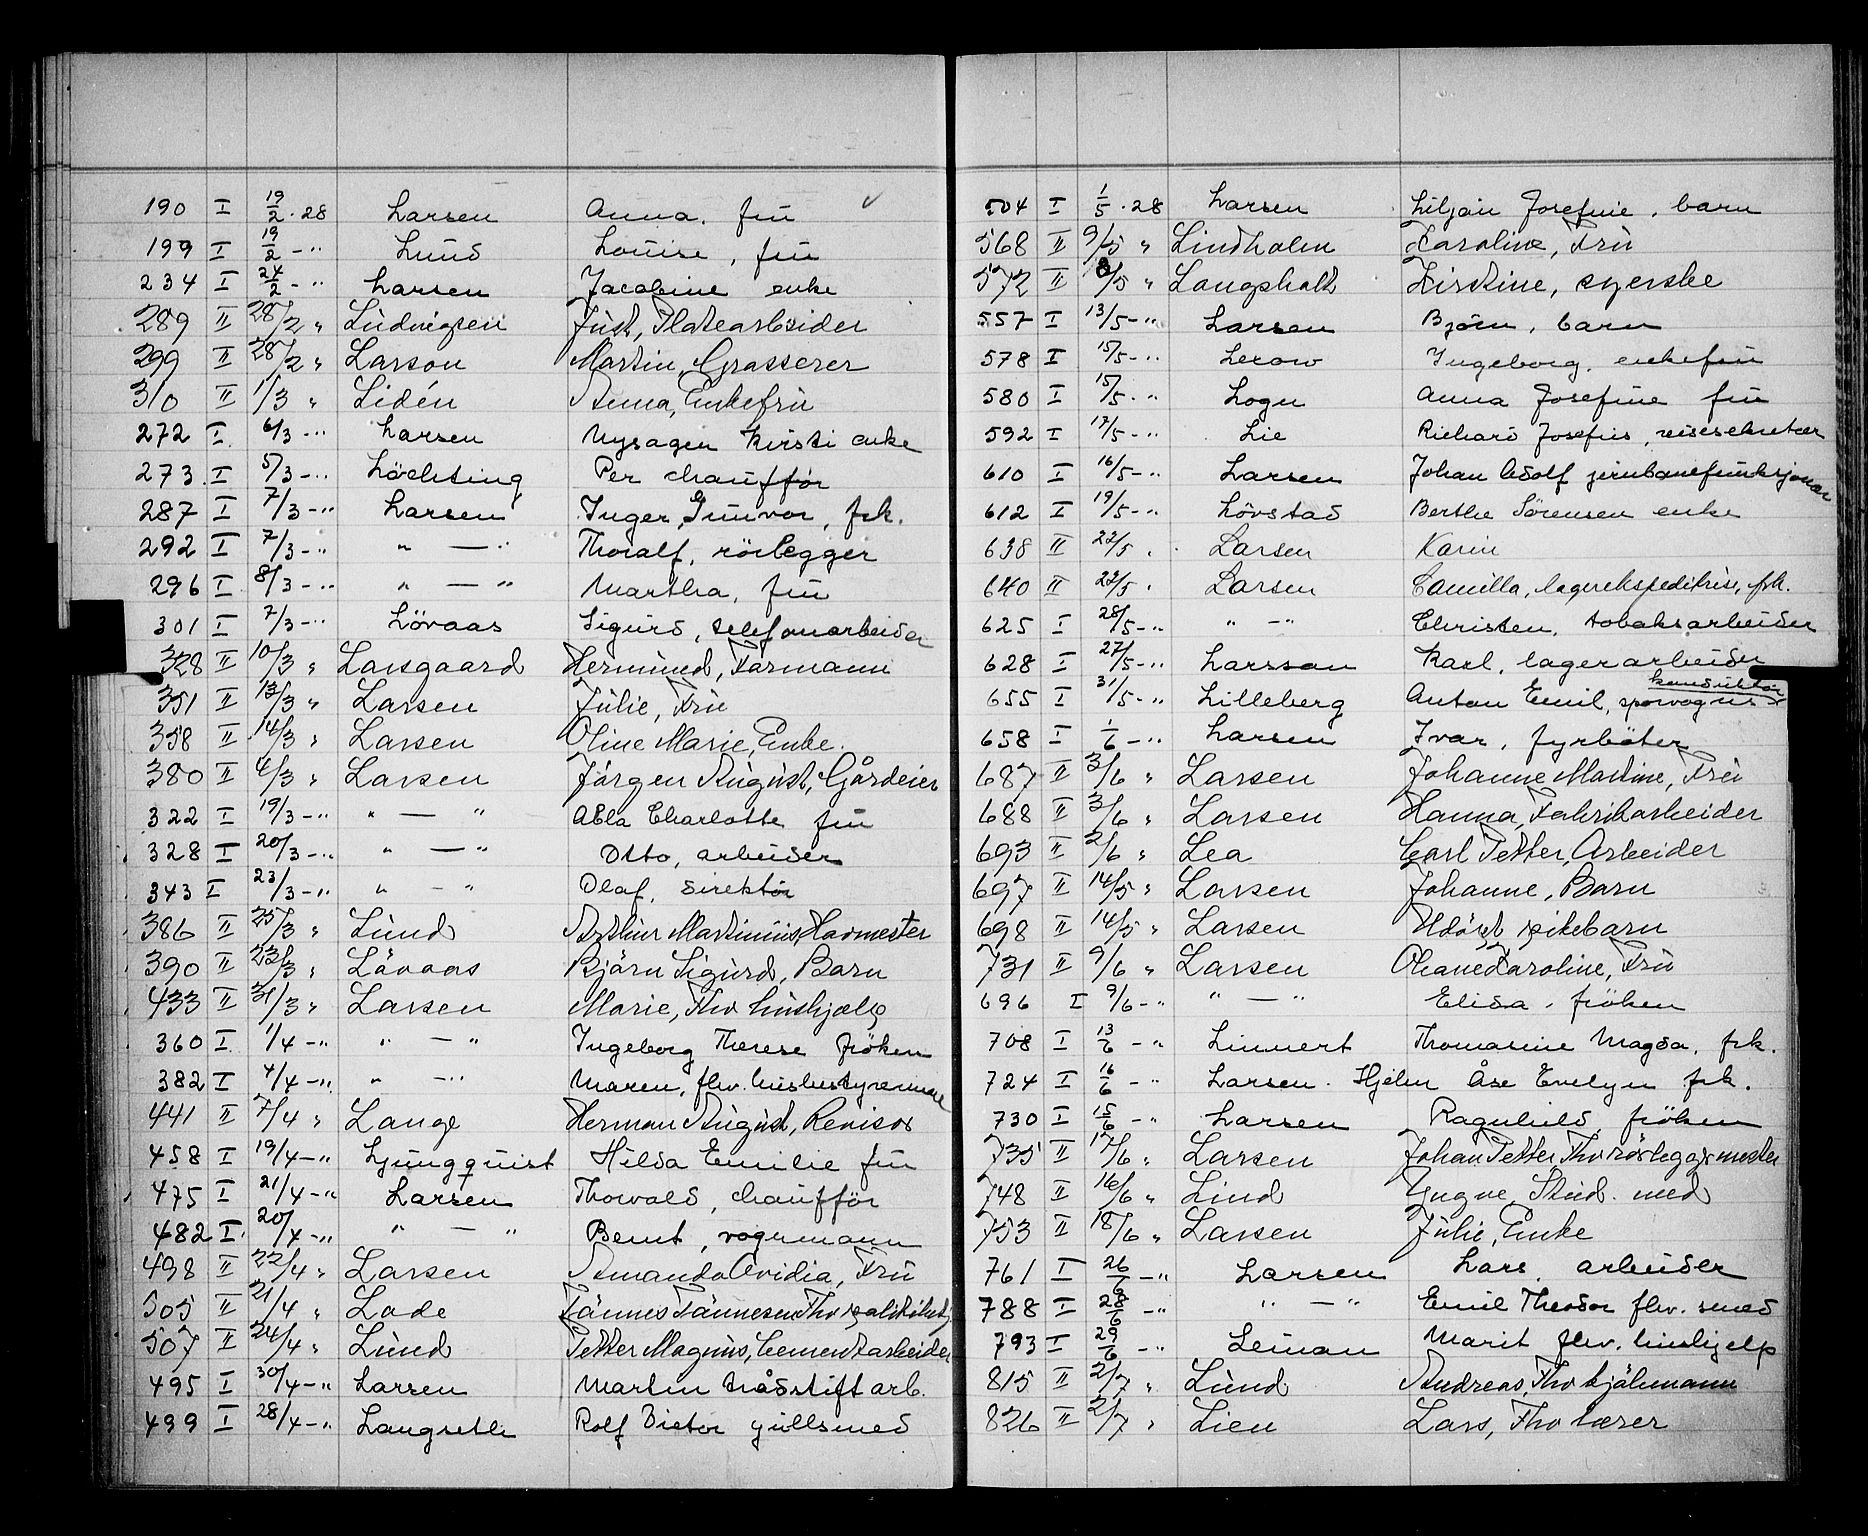 190 I 19/2 . 28 Larsen Anna, fru
199 I 19/2 - " Lund Louise, fru
234 I 24/2 - " Larsen Jacobine enke
289 II 28/2 " Ludvigsen Just, Platearbeider
299 II 28/2 " Larson Martin, Grasserer
310 II 1/3 " Lidén Anna, Enkefru
272 I 6/3 - " Larsen Nysagen Kirsti enke
273 I 5/3 - " Löchting Per chaufför
287 I 7/3 - " Larsen Inger, Gunvor, frk.
292 I 7/3 - " " — " Thoralf, rörlegger
296 I 8/3 - " " — " Martha, fru
301 I 7/3 - " Lövaas Sigurd, telefonarbeider
328 II 10/3 " Larsgaard Hermund, Formann
351 II 13/3 " Larsen Julie, Fru
358 II 14/3 " Larsen Oline Marie, Enke.
380 II 4/3 " Larsen Jörgen August, Gårdeier
322 I 19/3 - " " — " Abla Charlotte fru
328 I 20/3 - " " — " Otto, arbeider
343 I 23/3 - " " — " Olaf, direktör
386 II 25/3 " Lund Arthur Martinius, Havmester
390 II 23/3 " Lövaas Björn Sigurd, Barn
433 II 31/3 " Larsen Marie, Fhv hushjælp
360 I 1/4 - " " — " Ingeborg Therese fröken
382 I 4/4 - " " — " Maren, fhv. husbestyrerinne
441 II 7/4 " Lange Herman August, Revisor
458 I 19/4 - " Ljungquist Hilda Emilie fru
475 I 21/4 - " Larsen Thorvald, chaufför
482 I 20/4 - " " — " Bernt, vognmann
498 II 22/4 " Larsen Amanda Ovidia, Fru
505 II 21/4 " Lode Tönnes Tönnesen Fhv
507 II 24/4 " Lund Petter Magnus, Cementarbeider
495 I 30/4 - " Larsen Martin trådstiftarb.
499 I 28/4 - " Langseth Rolf Victor gullsmed
504 I 1/5 . 28 Larsen Liljan Josefine, barn
568 II 9/5 " Lindholm Karoline, Fru
572 II 8/5 " Langholt Kirstine, syerske
557 I 13/5 - " Larsen Björn, barn
578 I 15/5 - " Lexow Ingeborg, enkefru
580 I 15/5 - " Logn Anna Josefine fru
592 I 17/5 - " Lie Richard Josefus, reisesekretær
610 I 16/5 - " Larsen Johan Adolf jernbanefunksjonær
612 I 19/5 - " Lövstad Berthe Sörensen enke
638 II 22/5 " Larsen Karin
640 II 22/5 " Larsen Camilla, lagerekspeditrise, frk.
625 I 28/5 - " " — " Christen, tobaksarbeider
628 I 27/5 - " Larsson Karl, lagerarbeider
655 I 31/5 - " Lilleberg Anton Emil, sporvogns-
konduktör
658 I 1/6 - " Larsen Ivar, fyrböter
687 II 3/6 " Larsen Johanne Martine, Fru
688 II 3/6 " Larsen Hanna, Fabrikarbeider
693 II 2/6 " Lea Carl Petter, Arbeider
697 II 14/5 " Larsen Johanne, Barn
698 II 14/5 " Larsen Udöpt pikebarn
731 II 9/6 " Larsen Ohane Karoline, Fru
696 I 9/6 - " " — " Elida, fröken
708 I 13/6 - " Linnert Thomasine Magda, frk.
724 I 16/6 - " Larsen - Hjelm Åse Evelyn frk.
730 I 15/6 - " Larsen Ragnhild, fröken
735 II 17/6 " Larsen Johan Petter, Fhv rörleggermester
748 II 16/6 " Lind Yngve, Stud. med
753 II 18/6 " Larsen Julie, Enke
761 I 26/6 - " Larsen Lars, arbeider
788 I 28/6 - " " — " Emil Theodor fhv. smed
793 I 29/6 - " Leiman Marit fhv. hushjelp
815 II 2/7 " Lund Andreas, Fhv kjölmann
826 II 2/7 " Lien Lars, Fhv lærer